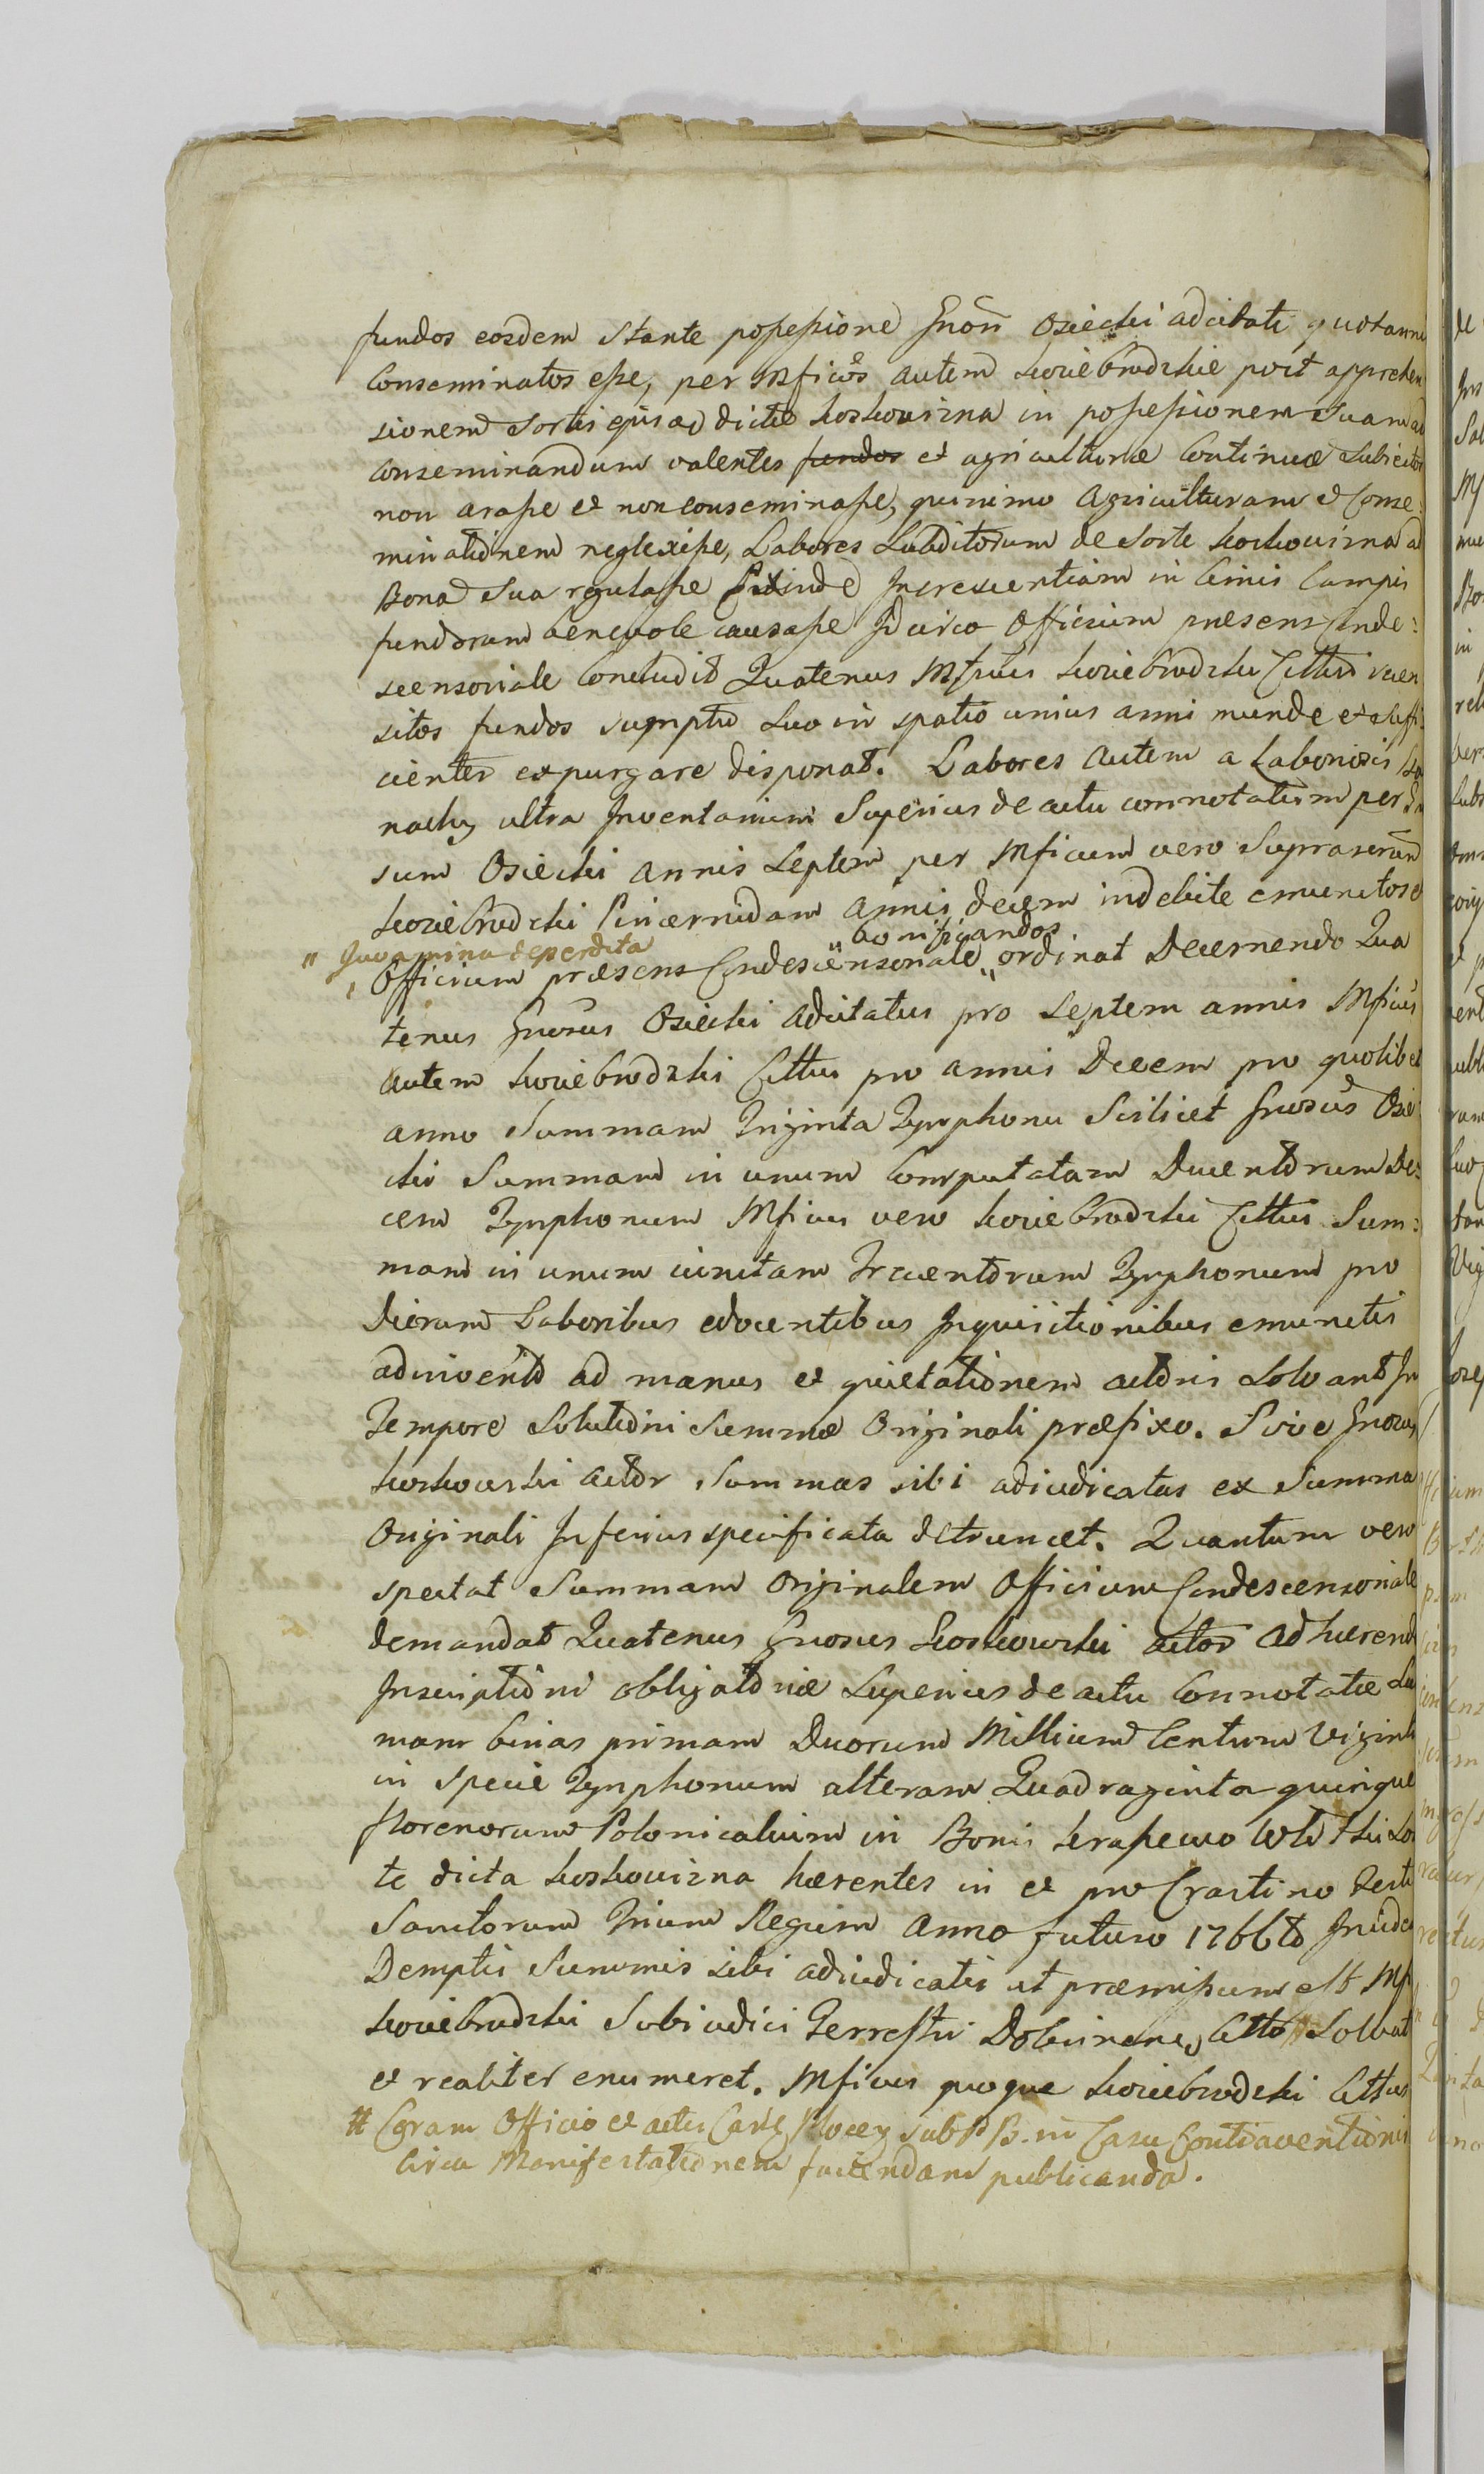 fundos eosdem stante possessione Gnosi Osiecki adcitati quotannis
Conseminatos esse, per Mficos autem Koziebrodzkie post apprehen
sionem sortis ejusd dictæ Koskowizna in possessionem suam ad
conseminandum valentes fundos et agriculturæ Continuæ Subiectos
non arasse et non conseminasse, quinimo Agriculturam et Conse:
minationem neglexisse, Labores Subditorum de Sorte Koskowizna ad
Bona Sua Exinde Increscentiam in Campis
fundorum benevole causasse Idcirco Officium præsens Conde:
scensoriale Concludit Quatenus Mficus Koziebrodzki Cittus recen
sitos fundos sumptu Suo in spatio unius anni munde et suffi:
cienter expurgare disponat. Labores autem a Laboriosis
ultra Inventarium Superius de actu connotatum per
sum Osiecki annis Septem per Mficum vero
Koziebrodzki Pincernidam annis decem indebite emunctos
" Juvamina deperdita
bonificandos
Officium præsens Condescensoriale " ordinat Decernendo Qua
tenus Gnosus Osiecki Adcitatus pro Septem annis Mficus
autem Koziebrodzki Cittus pro annis Decem pro quolibet
anno Summam Triginta Tymphonu Scilicet Gnosus Osie:
cki Summam in unum Computatam Ducentorum De:
cem Tymphonum Mficus vero Koziebrodzki Cittus Sum:
mam in unum iunctam Trecentorum Tymphonum pro
dierum Laboribus edocentibus Inquisitionibus emunctis
adinvento ad manus et quietationem actoris Solvant In
Tempore Solutioni Summæ Originali præfixo. Sive Gnosus
Koskowski actor Summas sibi adiudicatas ex Summa
Originali Inferius specificata detruncet. Quantum vero
spectat Summam Originalem Officium Condescensoriale
demandat Quatenus Gnosus Koskowski actor Adhærendo
Inscriptioni obligatoriæ Superius de actu Connotatæ
mam binas primam Duorum Millium Centum Viginti
in specie Tymphonum alteram Quadraginta quinque
florenorum Polonicalium in Bonis
te dicta Koskowizna hærentes in et pro Crastino Festi
Sanctorum Trium Regum Anno futuro 1766to
Demptis Summis sibi adiudicatis ut præmissum est Mfi
Koziebrodzki Subiudici Terrestri Dobrinensi Citto # Solvat
et realiter enumeret. Mficus quoque Koziebrodzki Cittus
# Coram Officio et actis in Casu Contraventionis
circa Manifestationem faciendam publicanda.